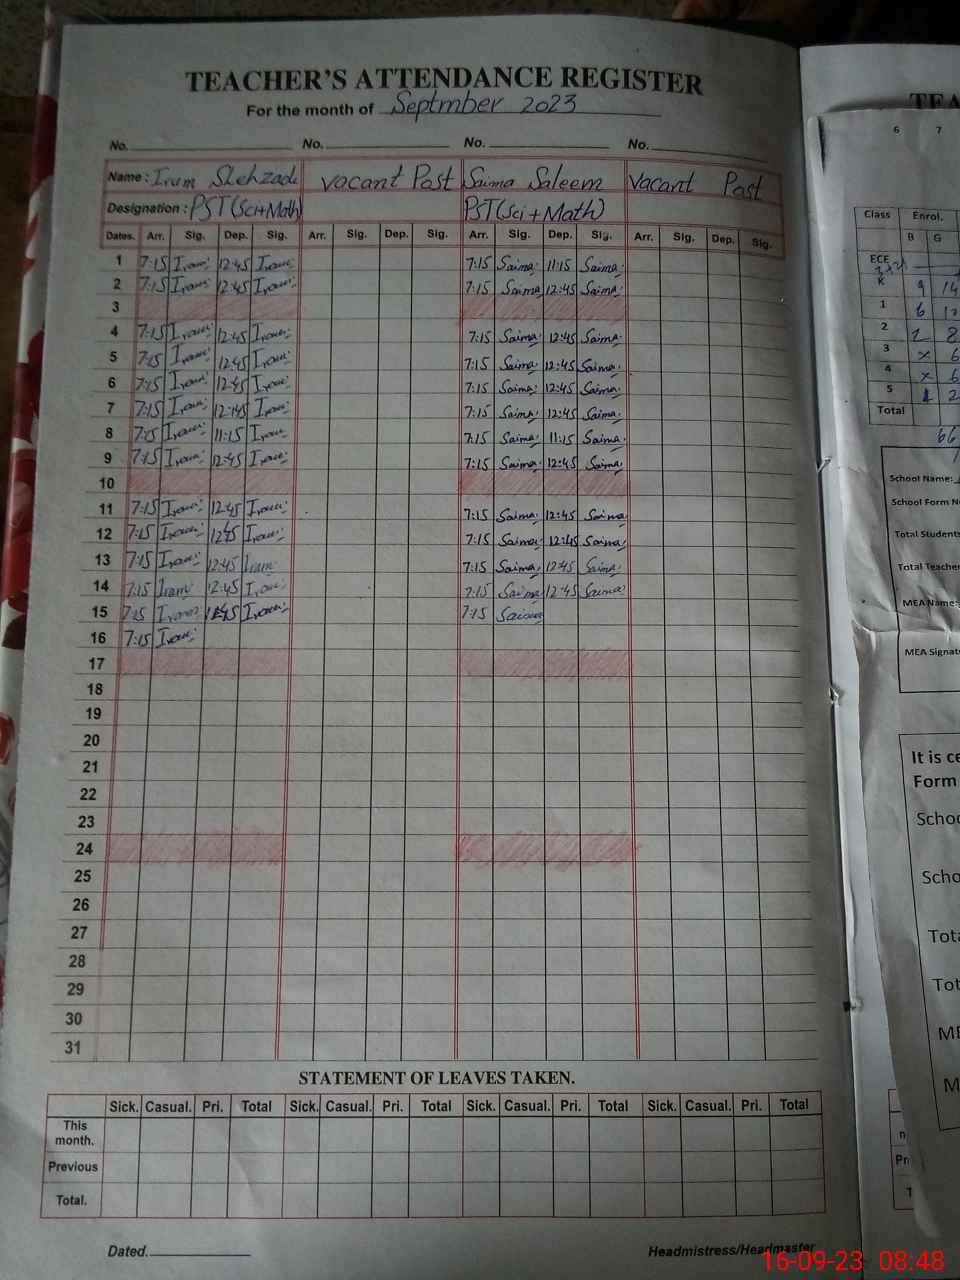 TEACHER'S ATTENDANCE REGISTER
For the month of Septmber 2023
No. No. No. No.
Name : Irum Shehzadi vacant Post Saima Saleem Vacant Post
Designation : PST(Sci+Math) PST(Sci+Math)
Dates. Arr. Sig. Dep. Sig. Arr. Sig. Dep. Sig. Arr. Sig. Dep. Sig. Arr. Sig. Dep. Sig.
1 7:15 Irum 12:45 Irum 7:15 Saima 11:15 Saima
2 7:15 Irum 12:45 Irum 7:15 Saima 12:45 Saima
3
4 7:15 Irum 12:45 Irum 7:15 Saima 12:45 Saima
5 7:15 Irum 12:45 Irum 7:15 Saima 12:45 Saima
6 7:15 Irum 12:45 Irum 7:15 Saima 12:45 Saima
7 7:15 Irum 12:45 Irum 7:15 Saima 12:45 Saima
8 7:15 Irum 11:15 Irum 7:15 Saima 11:15 Saima
9 7:15 Irum 12:45 Irum 7:15 Saima 12:45 Saima
10
11 7:15 Irum 12:45 Irum 7:15 Saima 12:45 Saima
12 7:15 Irum 12:45 Irum 7:15 Saima 12:45 Saima
13 7:15 Irum 12:45 Irum 7:15 Saima 12:45 Saima
14 7:15 Irum 12:45 Irum 7:15 Saima 12:45 Saima
15 7:15 Irum Irum 7:15 Saima
16 7:15 Irum
17
18
19
20
21
22
23
24
25
26
27
28
29
30
31
STATEMENT OF LEAVES TAKEN.
Sick. Casual. Pri. Total Sick. Casual. Pri. Total Sick. Casual. Pri. Total Sick. Casual. Pri. Total
This
month.
Previous
Total.
Dated. Headmistress/Headmaster
6 7
Class Enrol.
B G
ECE
K 9 14
1 6
2 2 8
3 × 6
4 × 6
5 2
Total
66
School Name:
School Form
Total Students
Total Teacher
MEA Name:
MEA
It is
Form
16-09-23 08:48